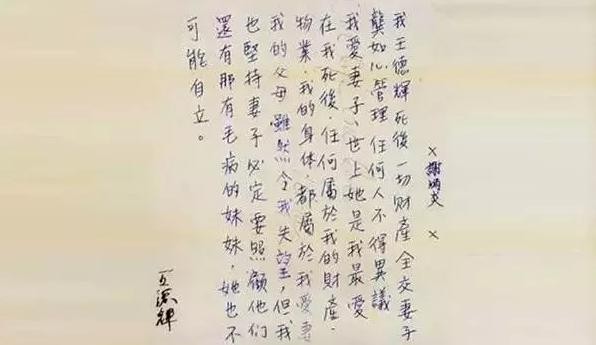 × 謝炳炎 ×
我王德輝死後一切財產全交妻子
龔如心管理任何人不得異議
我愛妻子、世上她是我最愛
在我死後.任何屬於我的財產.
物業.我的身体.都屬於我愛妻
我的父母雖然令我失望,但我
也堅持妻子必定要照顧他們
還有那有毛病的妹妹,她也不
可能自立。
王德輝